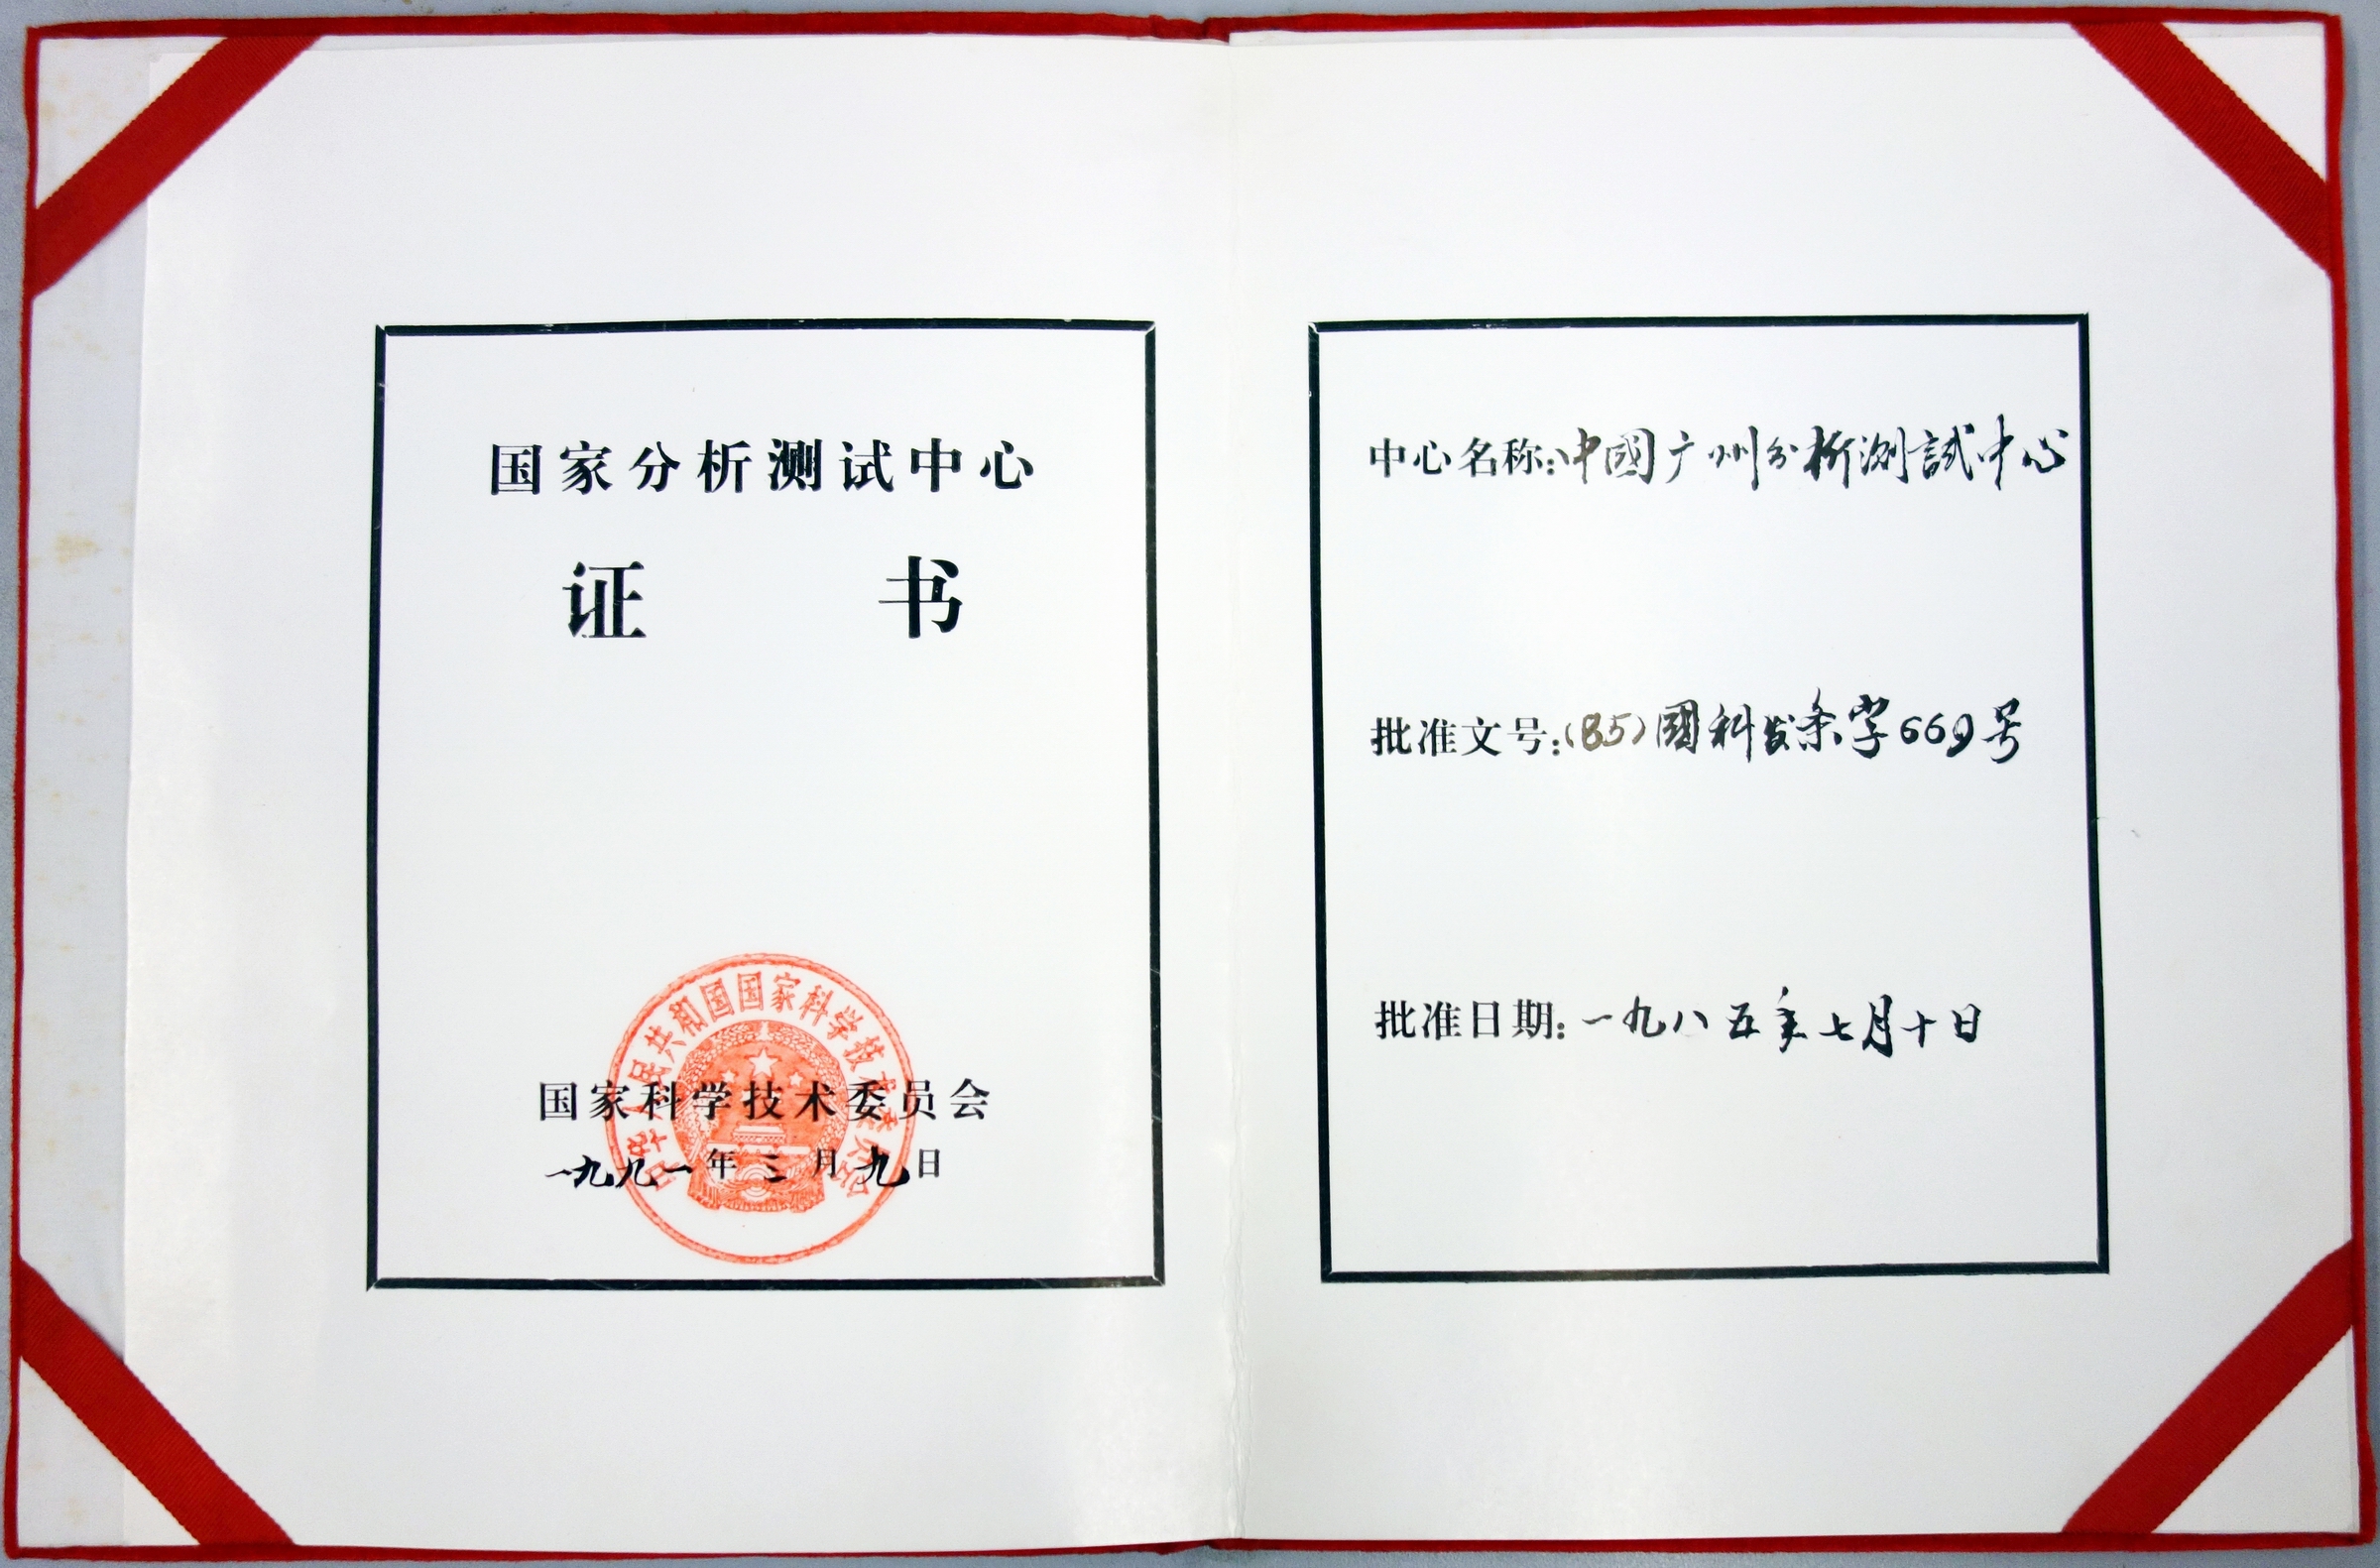 国家分析测试中心
证书
中华人民共和国国家科学技术委员会
国家科学技术委员会
一九九一年三月九日
中心名称:中國广州分析測試中心
批准文号:(85)國科发条字669号
批准日期:一九八五年七月十日